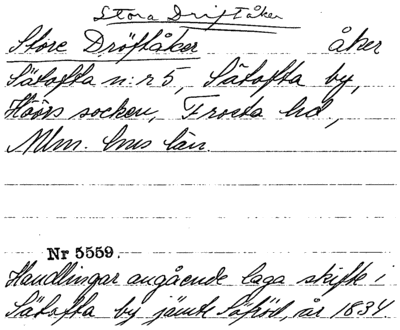 Stora Driftåker
Store Dröftåker åker
Sätofta n:r 5, Sätofta by,
Höörs socken, Frosta hd,
Mlm. hus län.
Nr 5559.
Handlingar angående laga skifte i
Sätofta by jämte Säfröd, år 1834.